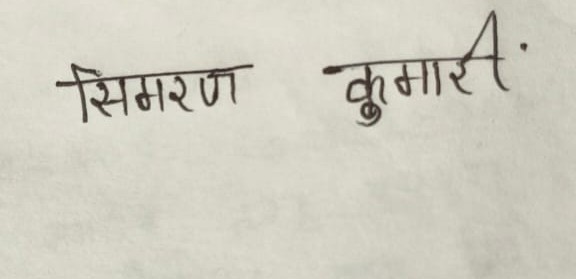 सिमरण कुमारी.